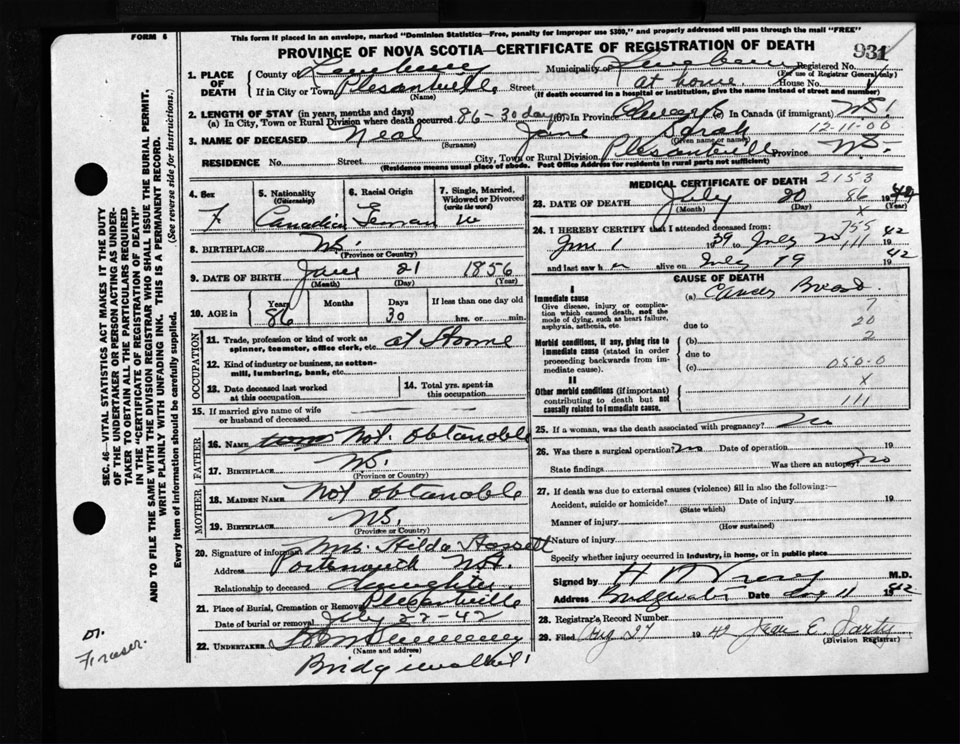 FORM 6
This form if placed in an envelope, marked "Dominion Statistics—Free, penalty for improper use $300," and properly addressed will pass through the mail "FREE"
PROVINCE OF NOVA SCOTIA—CERTIFICATE OF REGISTRATION OF DEATH
931
1. PLACE OF DEATH
County of Lunenburg Municipality of Lunenburg Registered No.
(For use of Registrar General only)
If in City or Town Plesantville Street at home House No.
(Name) (If death occurred in a hospital or institution, give the name instead of street and number)
2. LENGTH OF STAY (in years, months and days)
(a) In City, Town or Rural Division where death occurred 86 - 30 days (b) In Province Always (c) In Canada (if immigrant) NS.
12-11-00
3. NAME OF DECEASED Neal Jane Sarah
(Surname) (Given name or names)
RESIDENCE No. Street City, Town or Rural Division Plesantvill Province NS.
(Residence means usual place of abode. Post Office Address for residents in rural parts not sufficient)
4. Sex
F
5. Nationality
(Citizenship)
Canadian
6. Racial Origin
German
7. Single, Married, Widowed or Divorced
(write the word)
W
8. BIRTHPLACE NS.
(Province or Country)
9. DATE OF BIRTH June 21 1856
(Month) (Day) (Year)
10. AGE in
Years 86
Months
Days 30
If less than one day old
hrs. or min.
OCCUPATION
11. Trade, profession or kind of work as spinner, teamster, office clerk, etc. at Home
12. Kind of industry or business, as cotton-mill, lumbering, bank, etc.
13. Date deceased last worked at this occupation
14. Total yrs. spent in this occupation
15. If married give name of wife or husband of deceased
FATHER
16. Name Not obtanoble
17. BIRTHPLACE NS.
(Province or Country)
MOTHER
18. MAIDEN NAME Not obtanoble
19. BIRTHPLACE NS.
(Province or Country)
20. Signature of informant Mrs. Hilda Hassett
Address Portsmouth N.H.
Relationship to deceased daughter
21. Place of Burial, Cremation or Removal Plesantville
Date of burial or removal July 22 42
22. UNDERTAKER
(Name and address)
MEDICAL CERTIFICATE OF DEATH 2153
23. DATE OF DEATH July 20 86 1942
(Month) (Day) (Year)
x
24. I HEREBY CERTIFY that I attended deceased from: 755
June 1 1939 to July 20 111 1942
and last saw h er alive on July 19 1942
CAUSE OF DEATH
I
Immediate cause
Give disease, injury or complication which caused death, not the mode of dying, such as heart failure, asphyxia, asthenia, etc.
(a) Cancer Breast
7
due to 20
Morbid conditions, if any, giving rise to immediate cause (stated in order proceeding backwards from immediate cause).
(b) 2
due to
(c) 050-0
II
Other morbid conditions (if important) contributing to death but not causally related to immediate cause.
x
111
25. If a woman, was the death associated with pregnancy? No
26. Was there a surgical operation? no Date of operation 19
State findings Was there an autopsy? no
27. If death was due to external causes (violence) fill in also the following:—
Accident, suicide or homicide? Date of injury 19
(State which)
Manner of injury
(How sustained)
Nature of injury
Specify whether injury occurred in industry, in home, or in public place
Signed by M.D.
Address Bridgewater Date Aug 11 1942
28. Registrar's Record Number
29. Filed Aug 27 1942
(Division Registrar)
SEC. 46—VITAL STATISTICS ACT MAKES IT THE DUTY
OF THE UNDERTAKER OR PERSON ACTING AS UNDER-
TAKER TO OBTAIN ALL THE PARTICULARS REQUIRED
IN THE "CERTIFICATE OF REGISTRATION OF DEATH"
AND TO FILE THE SAME WITH THE DIVISION REGISTRAR WHO SHALL ISSUE THE BURIAL PERMIT.
WRITE PLAINLY WITH UNFADING INK. THIS IS A PERMANENT RECORD.
Every item of information should be carefully supplied. (See reverse side for instructions.)
Fraser.